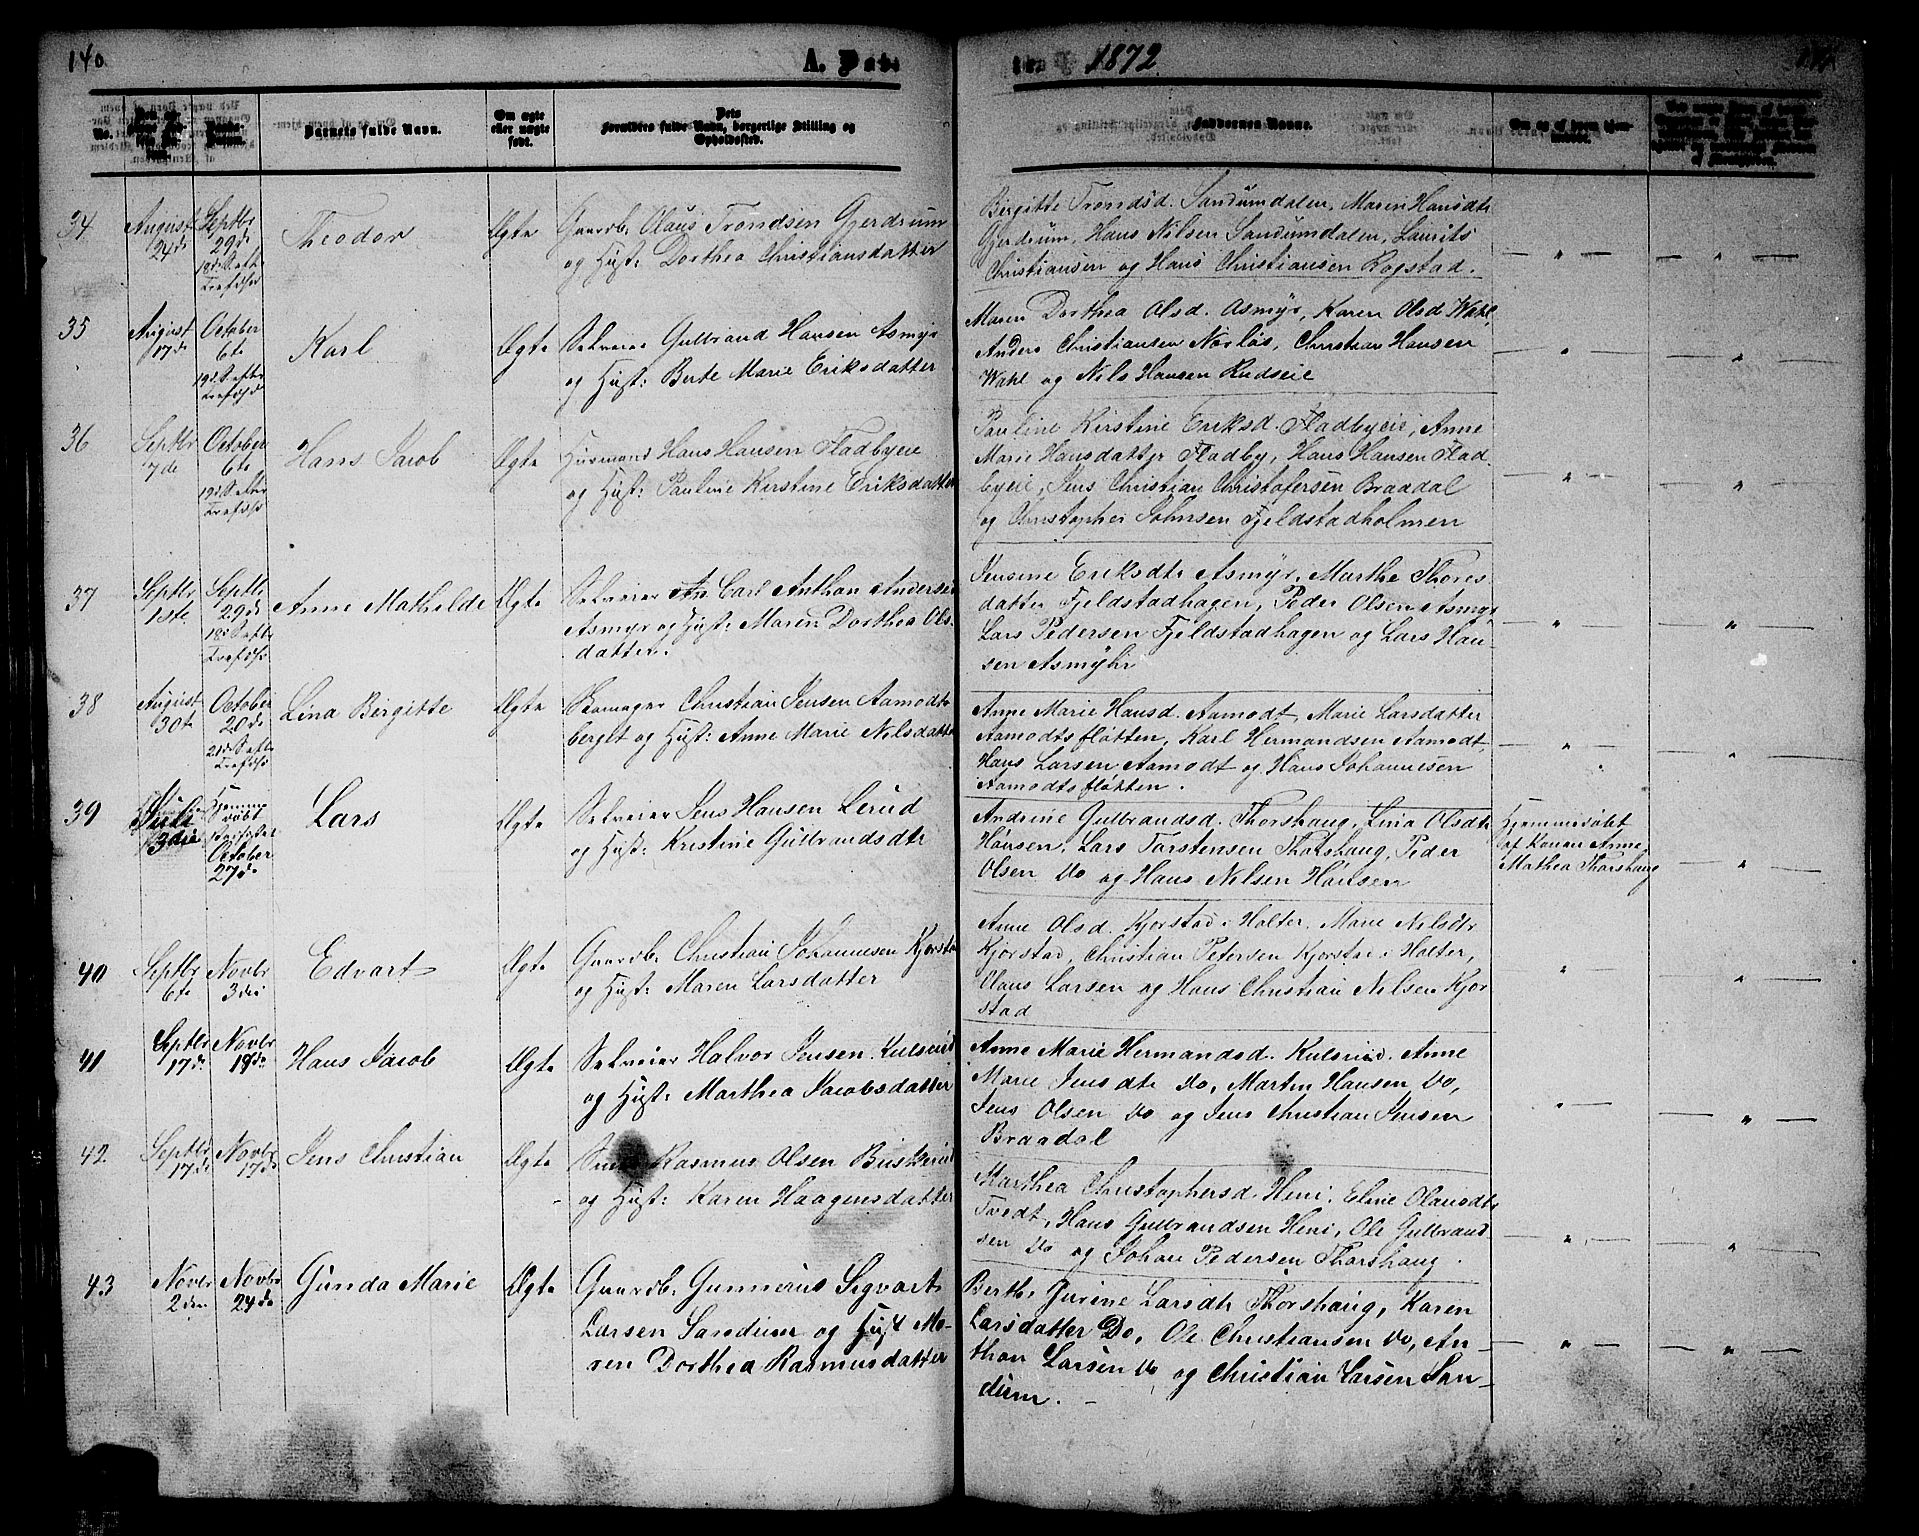 140
A. Døb-
1872
No.
Barnets fulde Navn.
Om ægte eller uægte født.
Dets Forældres fulde Navn, borgerlige Stilling og Opholdssted.
Faddernes Navne.
34
August 21de
Septbr 29de
18de S. eft. Trefdhs
Theodor
Ægte
Gaardb. Olaus Trondsen Gjerdrum
og Hust: Dorthea Christiansdatter
Birgitte Trondsd. Sandumdalen, Maren Hansdtr
Gjerdrum, Hans Nilsen Sandumdalen, Laurits
Christiansen og Hans Christiansen Rogstad.
35
August 17de
October 6te
19de S. efter Trefdhd
Karl
Ægte
Selveier Gulbrand Hansen Asmyr
og Hust: Berte Marie Eriksdatter
Maren Dorthea Olsd. Asmyr, Karen Olsd Wahl,
Anders Christiansen Norløs, Christian Hansen
Wahl og Nils Hansen Rudseie
36
Septbr 7de
October 6te
19de S. efter Trefdhs
Hans Jacob
Ægte
Husmand Hans Hansen Fladbyeie
og Hust: Pauline Kirstine Eriksdatter
Pauline Kirstine Eriksd. Fladbyeie, Anne
Marie Hansdatter Fladby, Hans Hansen Flad-
byeie, Jens Christian Christofersen Braadal
og Christopher Johnsen Fjeldstadholmen
37
Septbr 1ste
Septbr 29de
18de S. eftr Trefdhs
Anne Mathilde
Ægte
Selveier Carl Anthon Andersen
Asmyr og Hust: Maren Dorthea Ols-
datter.
Jensine Eriksdtr Asmyr, Marthe Thores
datter Fjeldstadhagen, Peder Olsen Asmyr,
Lars Pedersen Fjeldstadhagen og Lars Han-
sen Asmyhr
38
August 30t
October 20de
21de S. eftr Trefdhs
Lina Birgitte
Ægte
Skomager Christian Jensen Aamodt-
berget og Hust: Anne Marie Nilsdatter
Anne Marie Hansd. Aamodt, Marie Larsdatter
Aamodtsfløtten, Karl Hermandsen Aamodt,
Hans Larsen Aamodt og Hans Johannesen
Aamodtsfløtten.
39
Juli 3die
Hjemme døbt
October 27de
Lars
Ægte
Selveier Jens Hansen Lerud
og Hust: Kristine Gulbrandsdtr
Andrine Gulbrandsd. Thorshaug, Lina Olsdtr
Hønsen, Lars Torstensen Thorshaug, Peder
Olsen Do og Hans Nilsen Hønsen
Hjemmedøbt
af Konen Anne
Mathea Thorshaug
40
Septbr 6te
Novbr 3die
Edvart
Ægte
Gaardb. Christian Johannesen Kjorsta
og Hust: Maren Larsdatter
Anne Olsd. Kjorstad i Holter. Marie Nilsdtr
Kjorstad, Christian Petersen Kjorstad i Holter,
Olaus Larsen og Hans Christian Nilsen Kjor
stad
41
Septbr 17de
Novbr 19de
Hans Jacob
Ægte
Selveier Halvor Jensen Kulsrud
og Hust: Marthea Jacobsdatter
Anne Marie Hermandsd. Kulsrud. Anne
Marie Jensdtr Do, Martin Hansen Do,
Jens Olsen Do og Jens Christian Jensen
Braadal
42.
Septbr 17de
Novbr 17de
Jens Christian
Ægte
Rasmus Olsen Buskerud
og Hust: Karen Haagensdatter
Marthea Christophersd. Heni, Eline Olausdtr
Tvedt, Hans Gulbrandsen Heni, Ole Gulbrand
sen Do og Johan Pedersen Thorshaug.
43
Novbr 2den
Novbr 24de
Gunda Marie
Ægte
Gaardb. Gunnerus Sigvart
Larsen Sandum og Hust Ma-
ren Dorthea Rasmusdatter
Berthe Gurine Larsdtr Thorshaug, Karen
Larsdatter Do, Ole Christiansen Do, An-
thon Larsen Do og Christian Larsen San-
dum.